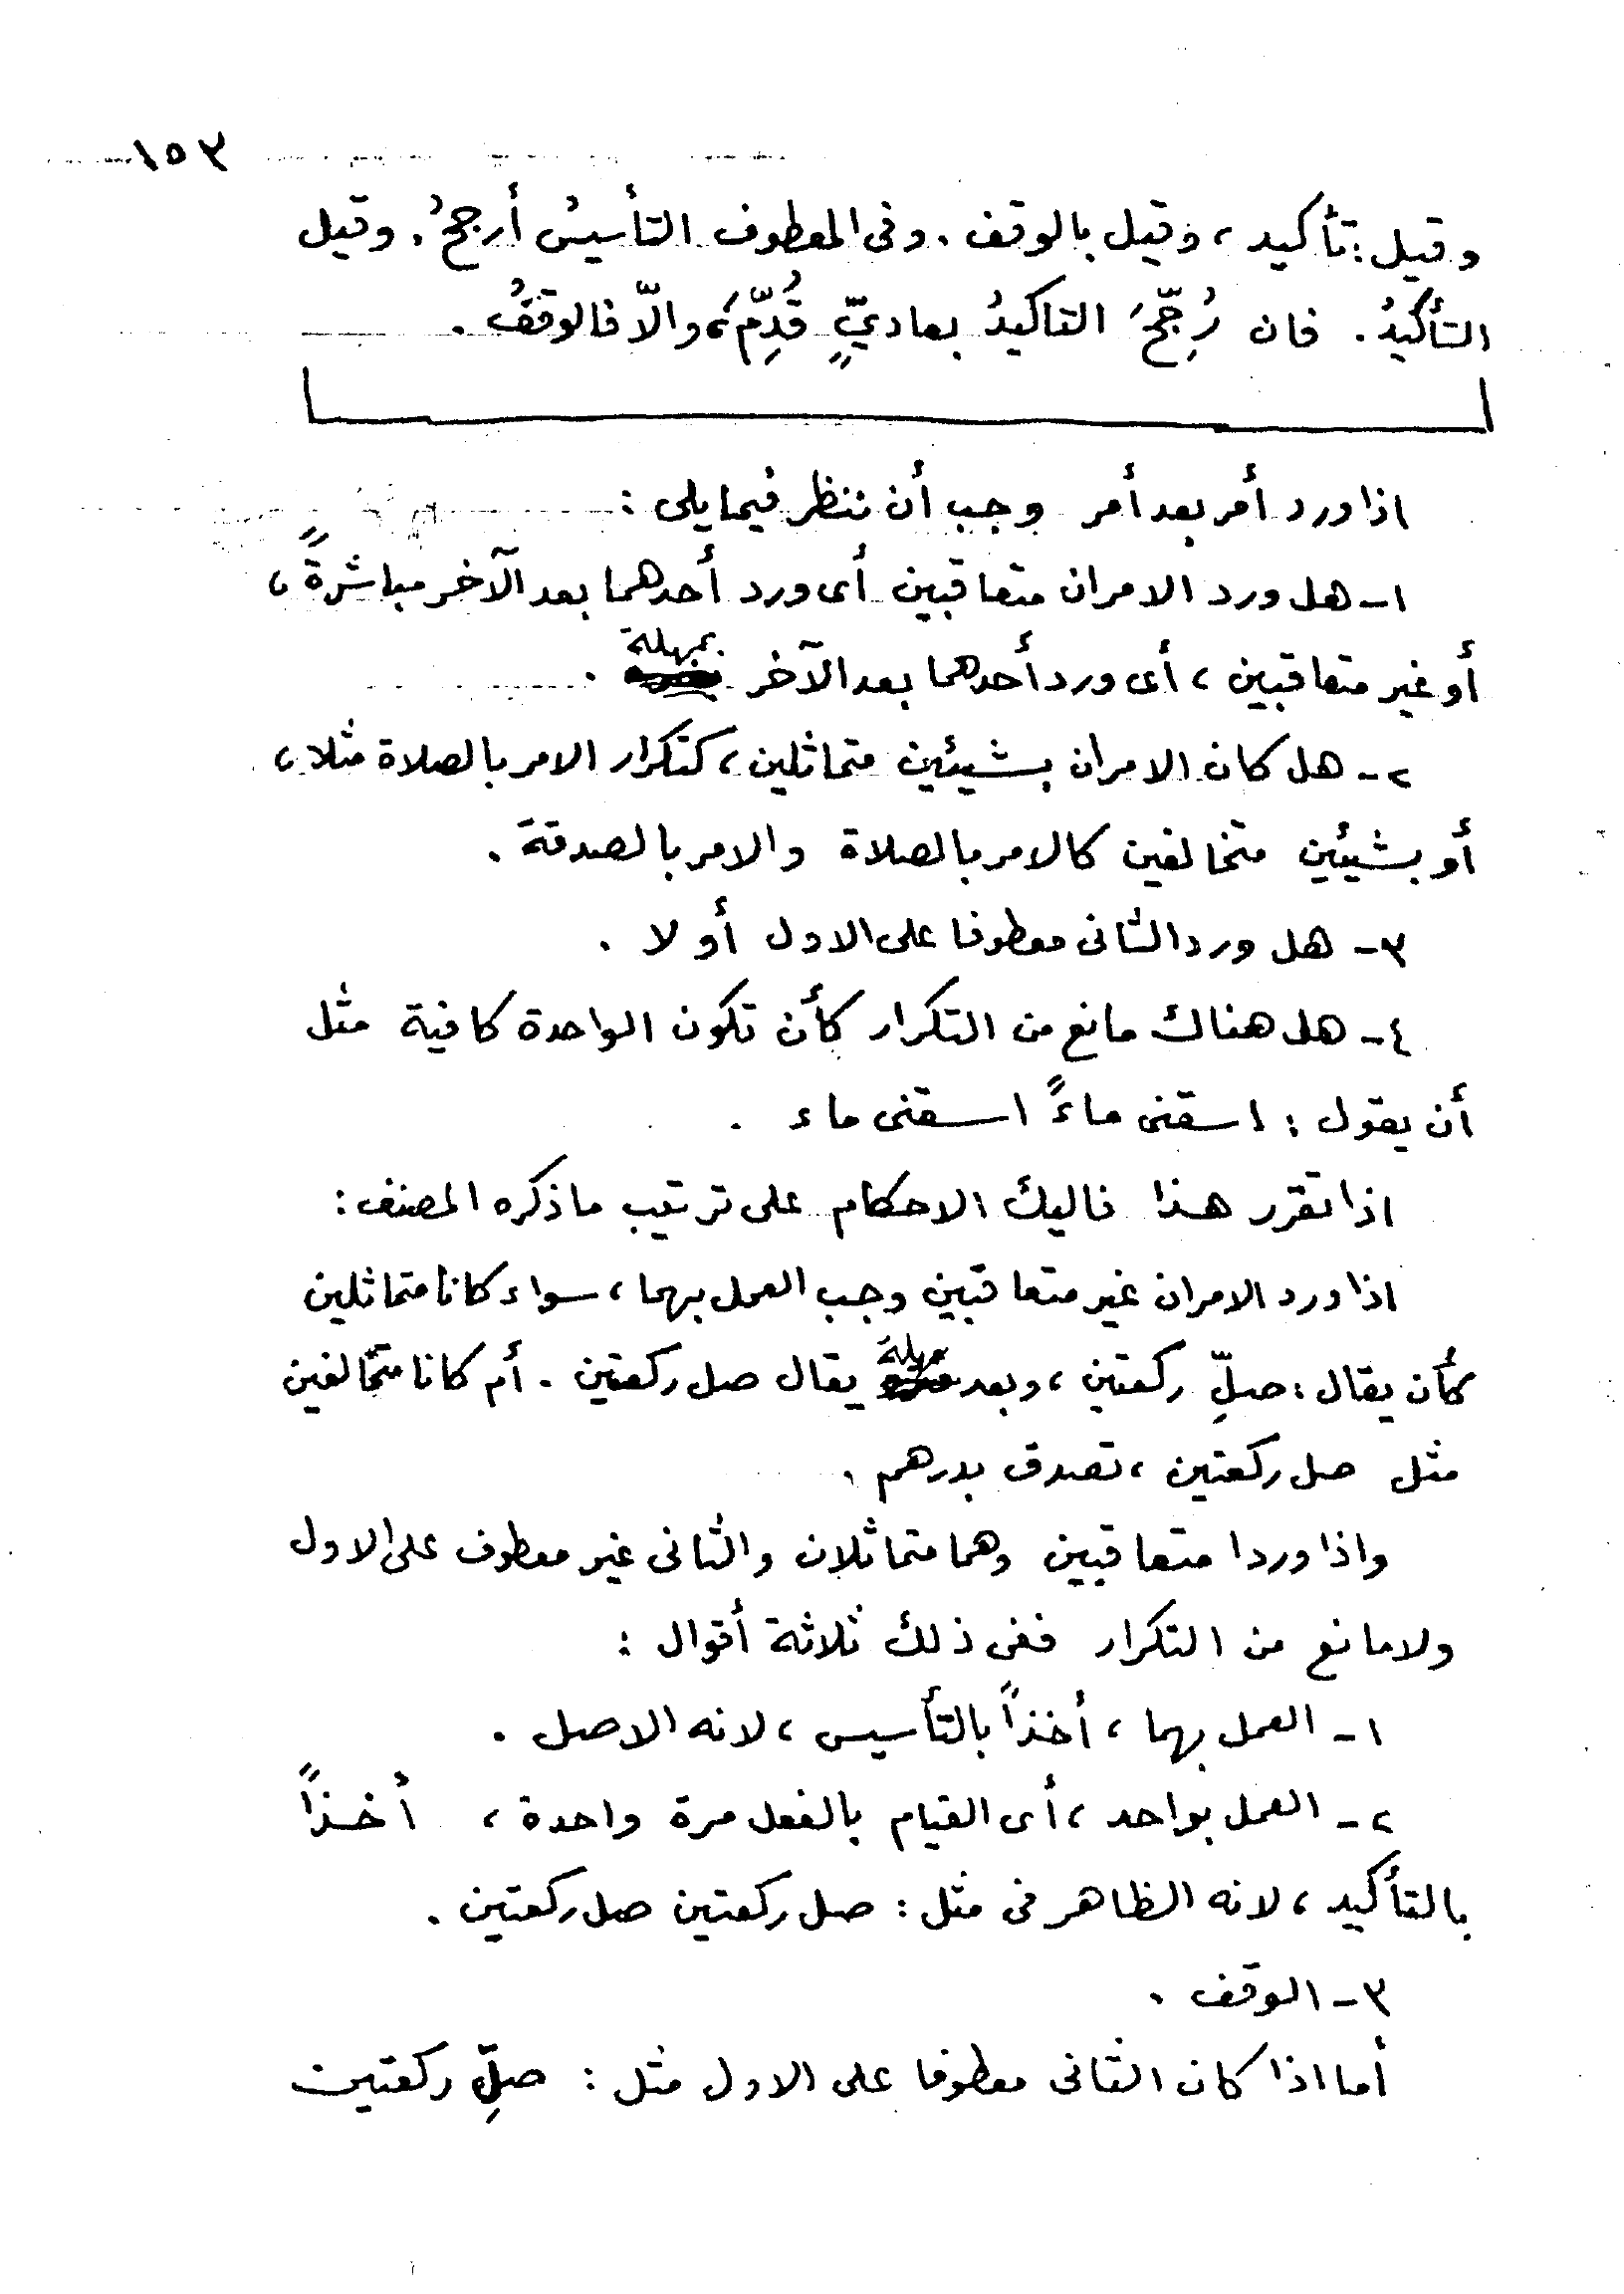 ١٥٣
وقيل: تأكيد، وقيل بالوقف. وفى المعطوف التأسيسُ أرجحُ. وقيل
التأكيدُ. فان رُجِّحَ التاكيدُ بعاديٍّ قُدِّمَ، والّا فالوقفُ.
اذا ورد أمر بعد أمر وجب أن ننظر فيما يلى:
١- هل ورد الامران متعاقبين أى ورد أحدهما بعد الآخر مباشرةً،
أو غير متعاقبين، أى ورد أحدهما بعد الآخر بمهلة.
٢- هل كان الامران بشيئين متماثلين، كتكرار الامر بالصلاة مثلا،
أو بشيئين متخالفين كالامر بالصلاة والامر بالصدقة.
٣- هل ورد الثانى معطوفا على الاول أو لا.
٤- هل هناك مانع من التكرار كأن تكون الواحدة كافية مثل
أن يقول: اسقنى ماءً اسقنى ماء.
اذا تقرر هذا فاليك الاحكام على ترتيب ما ذكره المصنف:
اذا ورد الامران غير متعاقبين وجب العمل بهما، سواء كانا متماثلين
كأن يقال: صلِّ ركعتين، وبعد مهلة يقال صل ركعتين. أم كانا متخالفين
مثل صل ركعتين، تصدق بدرهم.
واذا وردا متعاقبين وهما متماثلان والثانى غير معطوف على الاول
ولا مانع من التكرار ففى ذلك ثلاثة أقوال:
١- العمل بهما، أخذاً بالتأسيس، لانه الاصل.
٢- العمل بواحد، أى القيام بالفعل مرة واحدة، أخذاً
بالتأكيد، لانه الظاهر فى مثل: صل ركعتين صل ركعتين.
٣- الوقف.
أما اذا كان الثانى معطوفا على الاول مثل: صلِّ ركعتين